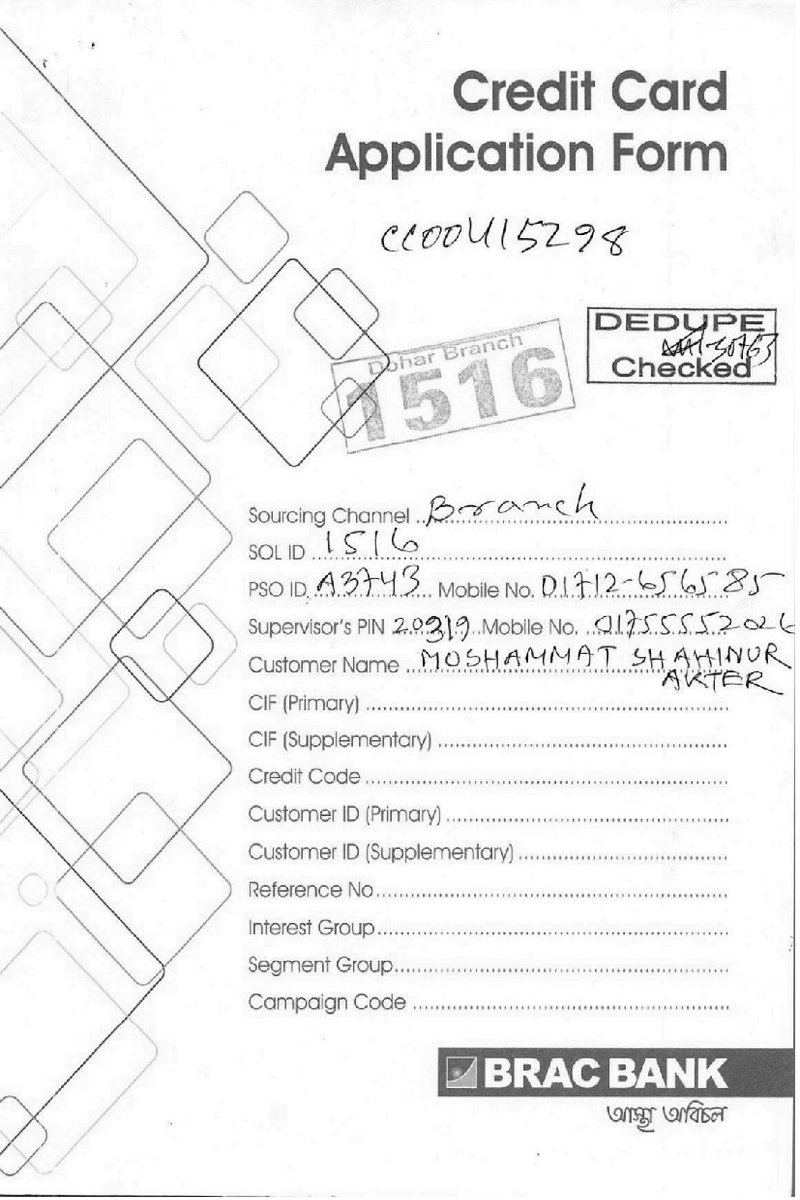 Credit Card
Application Form
CC00415298
DEDUPE
Checked
Dohar Branch
1516
Sourcing Channel Branch
SOL ID 1516
PSO ID A3743 Mobile No. 01712-656585
Supervisor's PIN 20319 Mobile No. 01755552026
Customer Name MOSHAMMAT SHAHINUR
AKTER
CIF (Primary)
CIF (Supplementary)
Credit Code
Customer ID (Primary)
Customer ID (Supplementary)
Reference No
Interest Group
Segment Group
Campaign Code
BRAC BANK
আস্থা অবিচল